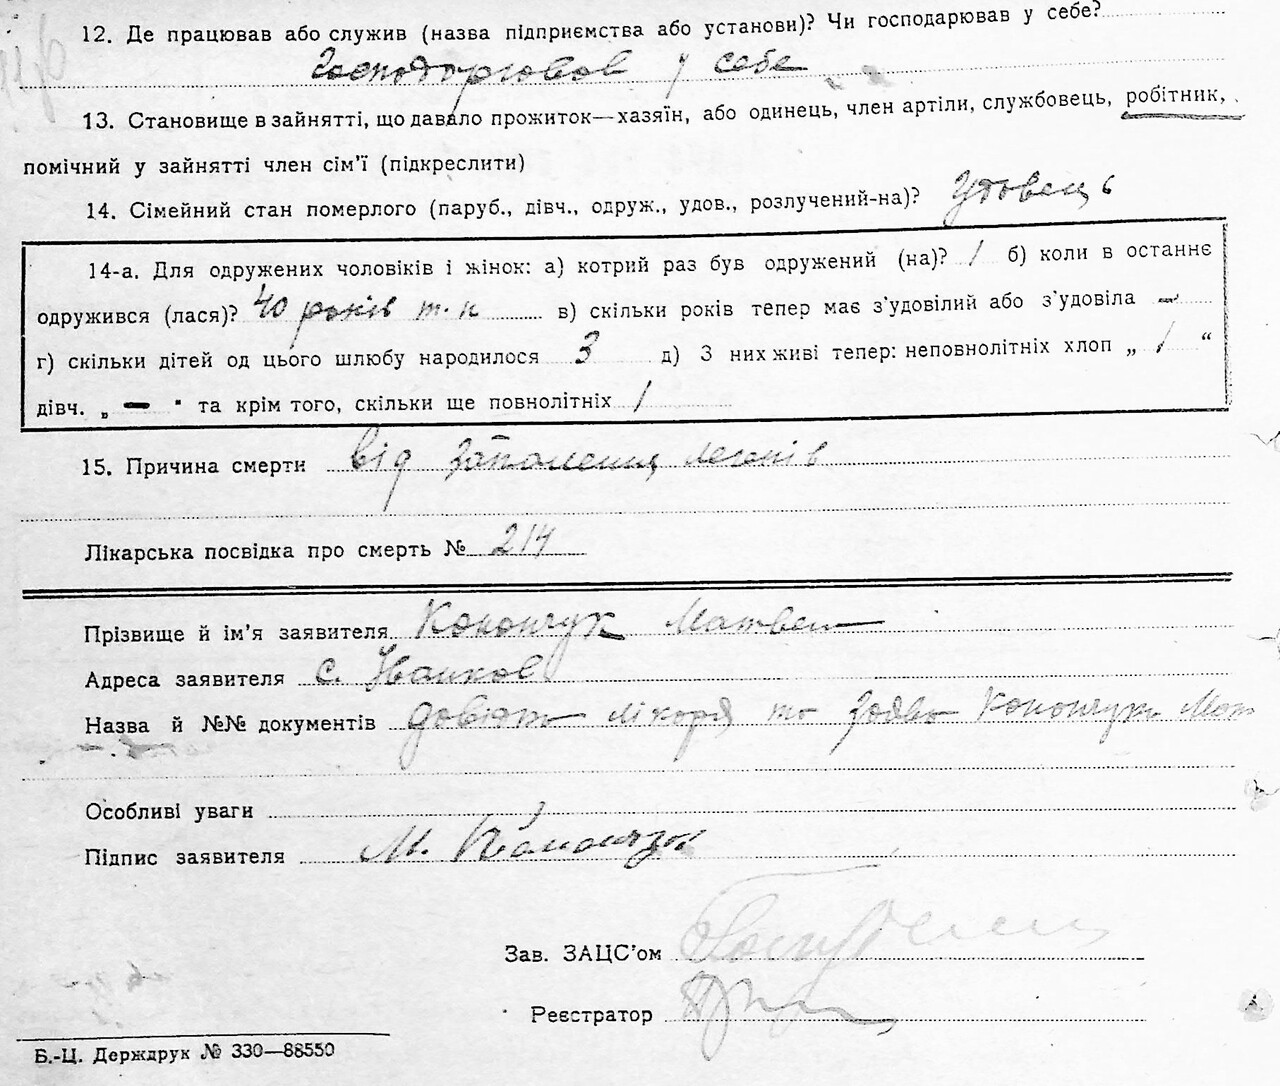 12. Де працював або служив (назва підприємства або установи)? Чи господарював у себе?
Господарював у себе
13. Становище в зайнятті, що давало прожиток—хазяїн, або одинець, член артіли, службовець, робітник,
помічний у зайнятті член сім'ї (підкреслити)
14. Сімейний стан померлого (паруб., дівч., одруж., удов., розлучений-на)? Удовець
14-а. Для одружених чоловіків і жінок: а) котрий раз був одружений (на)? 1 б) коли в останнє
одружився (лася)? 40 років т. н в) скільки років тепер має з'удовілий або з'удовіла —
г) скільки дітей од цього шлюбу народилося 3 д) З них живі тепер: неповнолітніх хлоп „ 1 “
дівч. „ — " та крім того, скільки ще повнолітніх 1
15. Причина смерти від запалення легенів
Лікарська посвідка про смерть № 214
Прізвище й ім'я заявителя Конончук Матвей
Адреса заявителя с.
Назва й №№ документів лікаря та заява Конончука Мат
Особливі уваги
Підпис заявителя М. Конончук
Зав. ЗАЦС'ом
Реєстратор
Б.-Ц. Держдрук № 330—88550